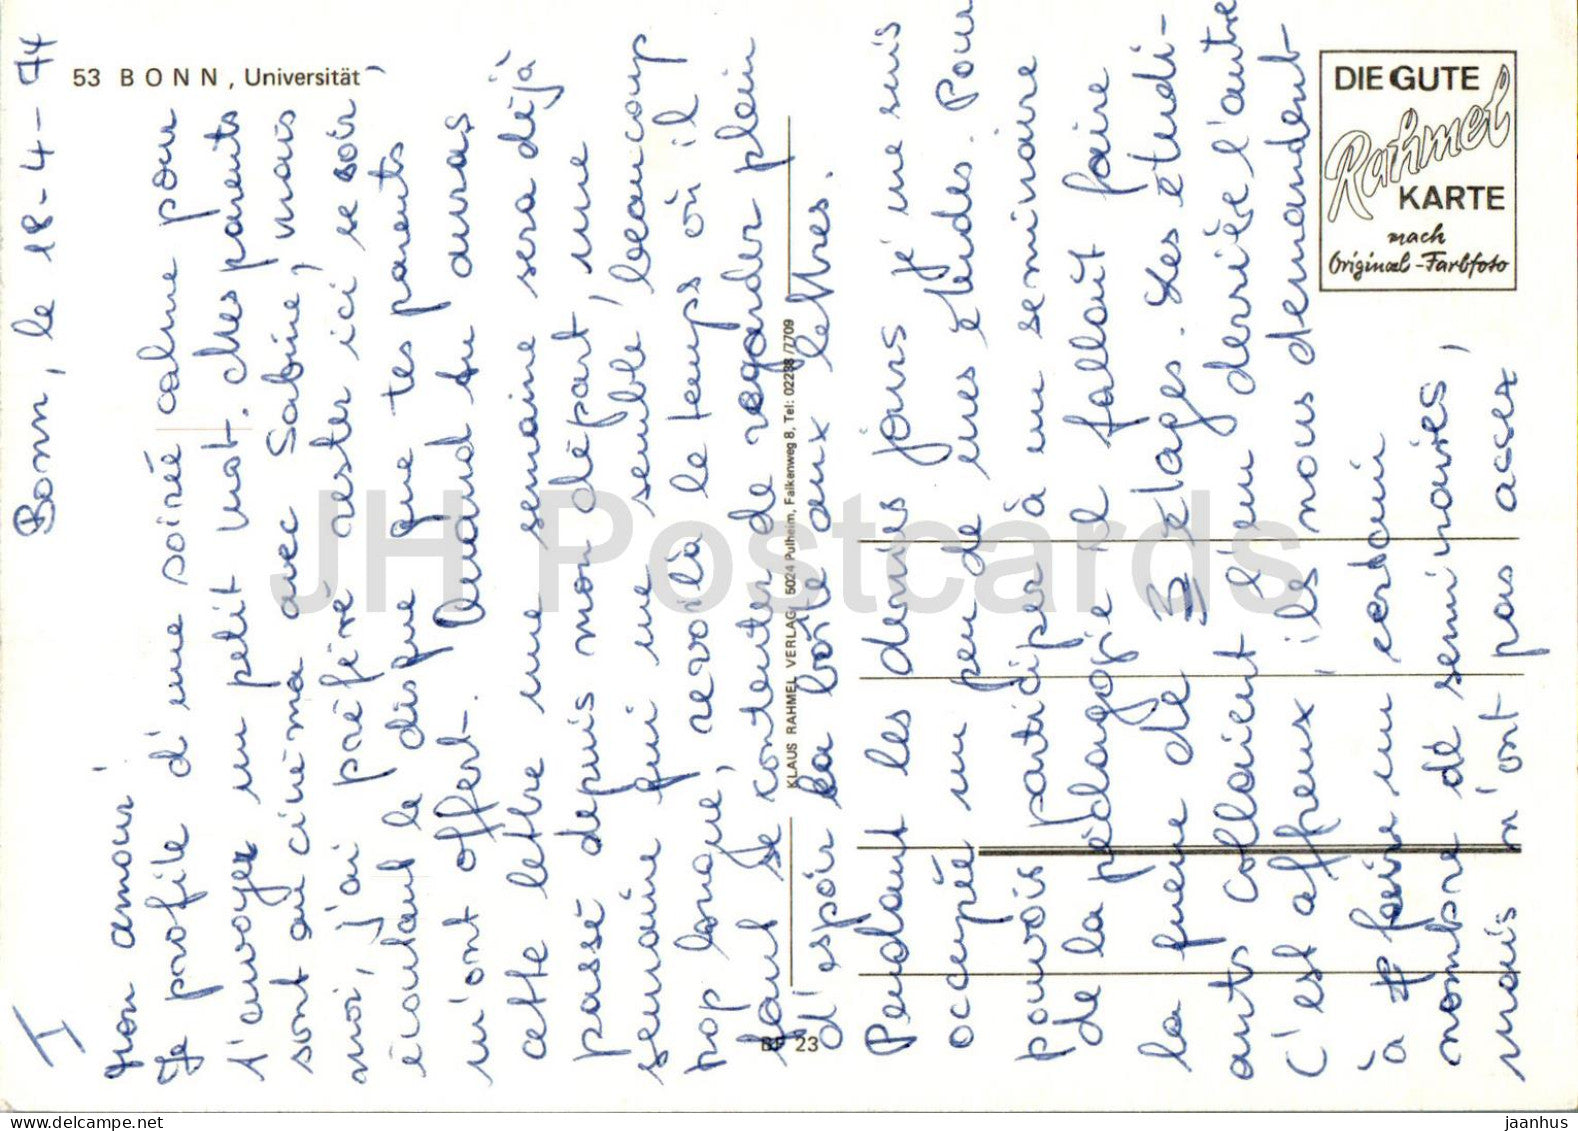 53 BONN, Universität
DIE GUTE
Rahmel
KARTE
nach
Original-Farbfoto
KLAUS RAHMEL VERLAG, 5024 Pulheim, Falkenweg 8, Tel: 02238/7709
BF 23
I
Bonn, le 18-4-74
Mon amour!
Je profite d'une soirée calme pour
t'envoyer un petit mot. Mes parents
sont au cinéma avec Sabine, mais
moi, j'ai préféré rester ici, ce soir
écoutant le disque que tes parents
m'ont offert. Quand tu auras
cette lettre une semaine sera déjà
passé depuis mon départ, une
semaine qui me semble, beaucoup
trop longue, revoilà le temps où il
faut se contenter de regarder plein
d'espoir la boîte aux lettres.
Pendant les derniers jours je me suis
occupée un peu de mes études. Pour
pouvoir participer à un seminaire
de la pédagogie il fallait faire
la queue de 3 étages. Les étudi-
ants collaient l'un derrière l'autre
C'est affreux, ils nous demandent
à faire un certain
nombre de seminaires,
mais n'ont pas assez
JH Postcards
jaanhus © HipPostcard